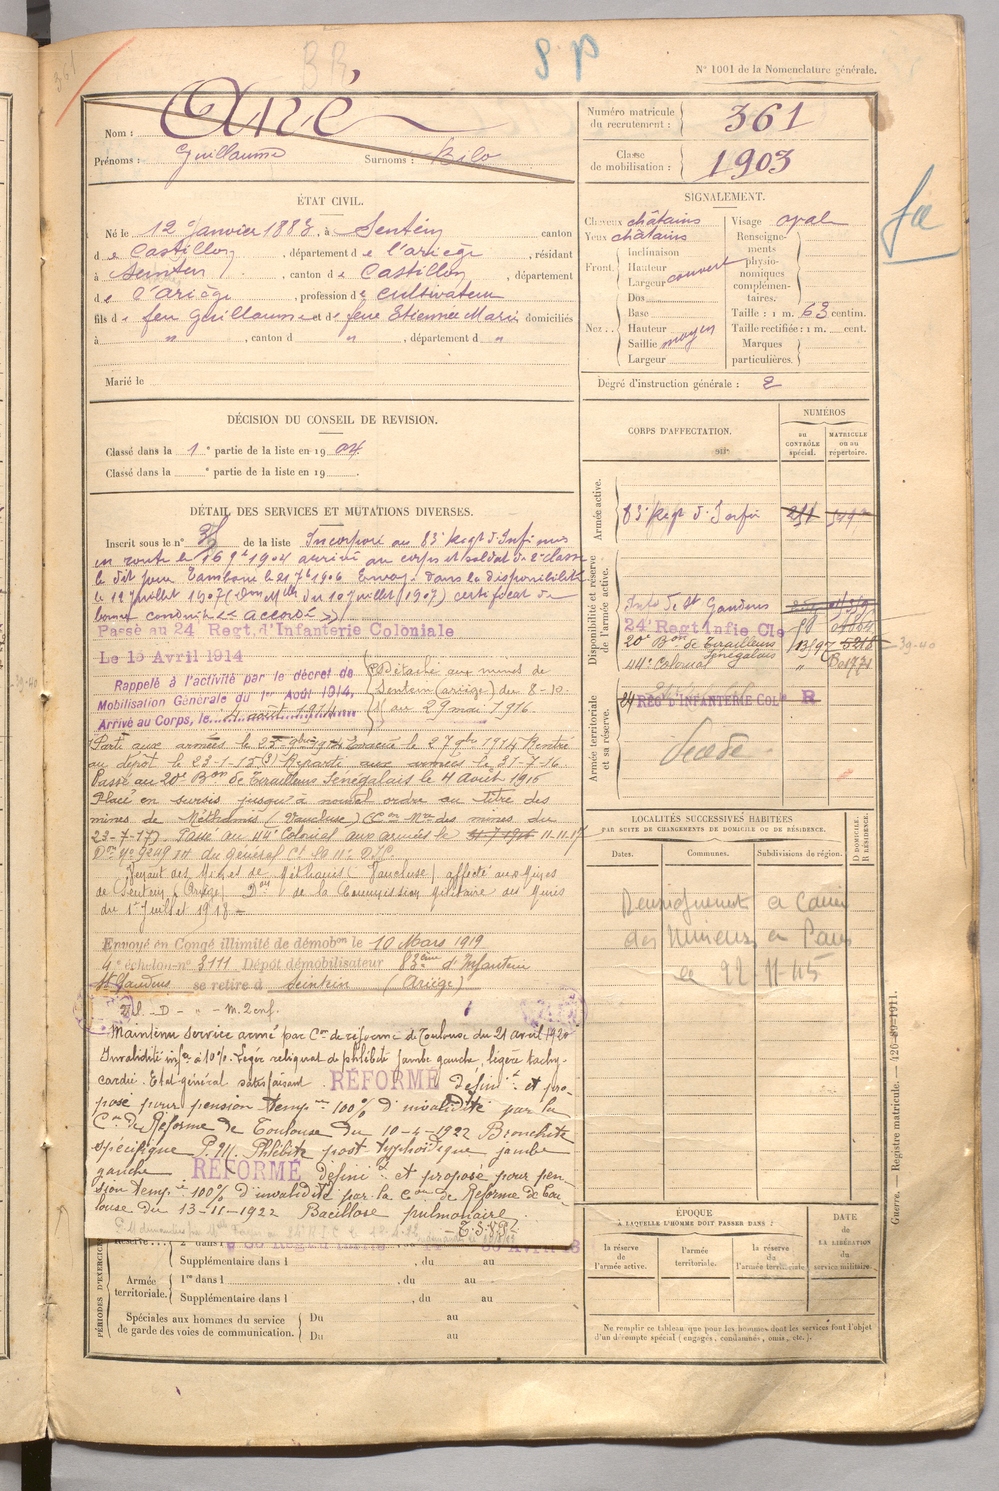 361
S P
N° 1001 de la Nomenclature générale.
Nom : Ané
Prénoms : Guillaume Surnoms : Kilo
Numéro matricule du recrutement : 361
Classe de mobilisation : 1903
fa
ÉTAT CIVIL.
Né le 12 Janvier 1883, à Sentein canton
de Castillon, département de l'ariège, résidant
à Sentein, canton de Castillon, département
de l'ariège, profession de cultivateur
fils de feu Guillaume et de feue Etiennee Marie domiciliés
à " , canton d " , département d "
Marié le
SIGNALEMENT.
Cheveux châtains Visage oval
Yeux châtains
Front. Inclinaison
Hauteur couvert
Largeur
Nez. Dos
Base
Hauteur
Saillie moyen
Largeur
Renseignements physionomiques complémentaires.
Taille : 1 m. 63 centim.
Taille rectifiée : 1 m. cent.
Marques particulières.
Degré d'instruction générale : 2
DÉCISION DU CONSEIL DE REVISION.
Classé dans la 1e partie de la liste en 1904
Classé dans la e partie de la liste en 19
DÉTAIL DES SERVICES ET MUTATIONS DIVERSES.
Inscrit sous le n° de la liste Incorporé au 83e Regt d'Infie
en route le 16 9bre 1904 arrivé au corps et soldat de 2e classe
le dit jour Tambour le 21 7bre 1906 Envoyé dans la disponibilité
le 12 juillet 1907 (Don Mlle du 10 juillet 1907) certificat de
bonne conduite "accordé"
Passé au 24 Regt d'Infanterie Coloniale
Le 15 Avril 1914
Rappelé à l'activité par le décret de
Mobilisation Générale du 1er Août 1914,
Arrivé au Corps, le août 1914
Détaché aux mines de
Sentein (ariège) du 8-10-
au 29 mai 1916.
Parti aux armées le Evacué le 27 9bre 1914 Rentré
au dépôt le 23-1-15 Reparti aux armées le 31-7-16.
Passé au 20e Bon de Tirailleurs Sénégalais le 4 Août 1916
Placé en sursis jusqu'à nouvel ordre au titre des
mines de Méthamis (Vaucluse) (Con Mre des mines du
23-7-17). Passé au 44e Colonial aux armées le 31-7-1916 11.11.17
Don n° 9249 du général Ct la 11e D.I.C.
Venant des Mines de Méthamis (Vaucluse) affecté aux Mines
de Sentein (Ariège) Don de la Commission militaire des Mines
du 1er Juillet 1918
Envoyé en Congé illimité de démobon le 10 Mars 1919
4e échelon n° 3111 Dépôt démobilisateur 83ème d'Infanterie
St Gaudens se retire à Seintein (Ariège)
M. 2 enf.
Maintenu service armé par Con de réforme de Toulouse du 21 avril 1920
Invalidité infre à 10%. Léger reliquat de phlébite jambe gauche, légère tachy-
cardie. Etat général satisfaisant. RÉFORMÉ définit et pro-
posé pour pension temp 100% d'invalidité par la
Con de Réforme de Toulouse du 10-4-1922 Bronchite
spécifique P.M. Phlébite post-typhoïdique jambe
gauche RÉFORMÉ définit et proposé pour pen-
sion temp 100% d'invalidité par la Con de Réforme de Tou-
louse du 13-11-1922 Bacillose pulmonaire
CORPS D'AFFECTATION.
NUMÉROS
DU CONTRÔLE spécial.
MATRICULE OU AU répertoire.
Armée active.
83e Regt d'Infie
Disponibilité et réserve de l'armée active.
Infie de St Gaudens
24e Regt Infie Cle
20e Bon de Tirailleurs Sénégalais 13197 5218
44e Colonial "
39-40
Armée territoriale et sa réserve.
24 REG. D'INFANTERIE COLe R
Décédé
LOCALITÉS SUCCESSIVES HABITÉES
PAR SUITE DE CHANGEMENTS DE DOMICILE OU DE RÉSIDENCE.
Dates. Communes. Subdivisions de région. D. DOMICILE. R. RÉSIDENCE.
Renseignements a Caisse
des Mineurs en Paris
le 22-11-45
ÉPOQUE
À LAQUELLE L'HOMME DOIT PASSER DANS :
la réserve de l'armée active.
l'armée territoriale.
la réserve de l'armée territoriale.
DATE de LA LIBÉRATION du service militaire.
Ne remplir ce tableau que pour les hommes dont les services font l'objet
d'un décompte spécial (engagés, condamnés, omis, etc.).
PÉRIODES D'EXERCICE
Supplémentaire dans l , du au
Armée territoriale. 1re dans l , du au
Supplémentaire dans l , du au
Spéciales aux hommes du service de garde des voies de communication. Du au
Du au
Guerre. — Registre matricule. — 426-89-1911.